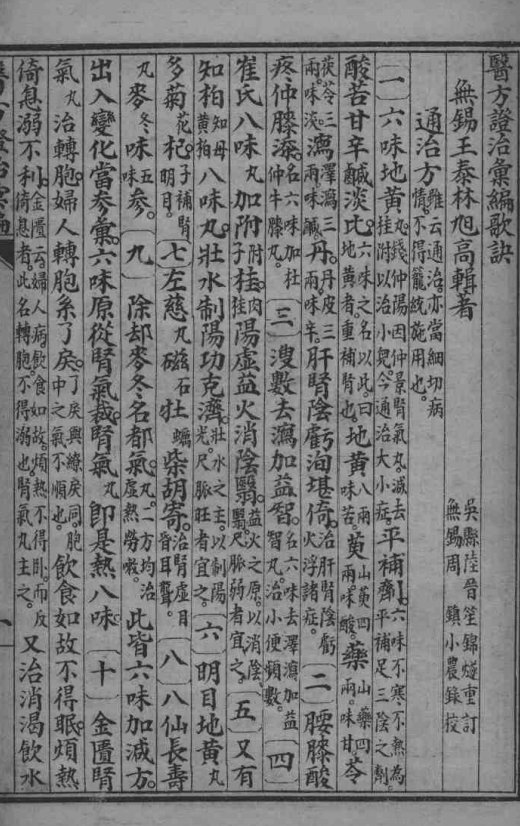 醫方證治彙編歌訣
無錫王泰林旭高輯著
吳縣陸晉笙錦燧重訂
無錫周鎮小農錄校
通治方雖云通治。亦當細切病情。不得籠統施用也。
一 六味地黃丸。錢仲陽因仲景腎氣丸。減去桂附。以治小兒。今通治大小症。平補劑。六味不寒不熱。為平補足三陰之劑。
酸苦甘辛鹹淡比。六味之名以此。曰地黃者。重補腎也。地黃八兩味苦。萸山萸四兩。味酸。藥山藥四兩。味甘。苓
茯苓三兩。味淡。瀉澤瀉三兩。味鹹。丹。丹皮三兩。味辛。肝腎陰虧洵堪倚。治肝腎陰虧火浮諸症。二 腰膝酸
疼仲膝添。名六味加杜仲牛膝丸。三 溲數去瀉加益智。名六味去澤瀉加益智丸。治小便頻數。四
崔氏八味丸加附附子桂肉桂陽虛益火消陰翳。益火之原。以消陰翳。尺脈弱者宜之。五 又有
知柏知母黃柏八味丸壯水制陽功克濟。壯水之主。以制陽光。尺脈旺者宜之。六 明目地黃丸
多菊花杞子補腎明目。七 左慈丸磁石牡蠣柴胡寄。治腎虛目昏耳聾。八 八仙長壽
丸麥冬味五味參。九 除却麥冬名都氣。丸。二方均治虛熱勞嗽。此皆六味加減方。
出入變化當參彙。六味原從腎氣裁。腎氣丸即是熱八味。十 金匱腎
氣丸治轉胞。婦人轉胞系了戾。了戾與繚戾同。胞中之氣不順也。飲食如故不得眠。煩熱
倚息溺不利。金匱云。婦人病飲食如故。煩熱不得臥。而反倚息者。此名轉胞。不得溺也。腎氣丸主之。又治消渴飲水